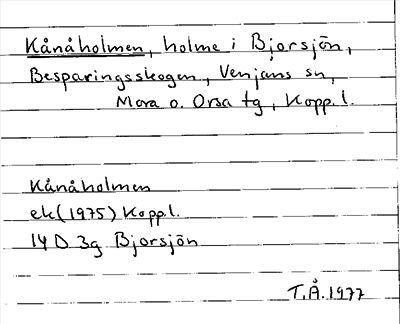 Kånåholmen, holme i Bjorsjön,
Besparingsskogen, Venjans sn,
Mora o. Orsa tg, Kopp. l.
Kånåholmen
ek (1975) Kopp.l.
14 D 3g Bjorsjön
T.Å. 1977